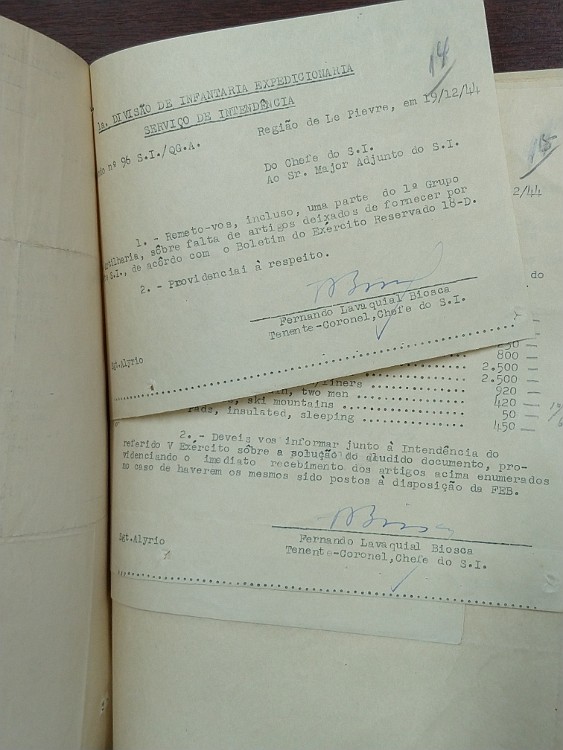 14
1a. DIVISÃO DE INFANTARIA EXPEDICIONARIA
SERVIÇO DE INTENDÊNCIA
Região de Le Pievre, em 19/12/44
nº 96 S.I./QG.A.
Do Chefe do S.I.
Ao Sr. Major Adjunto do S.I.
1. - Remeto-vos, incluso, uma parte do 1º Grupo
sôbre falta de artigos deixados de fornecer por
S.I., de acôrdo com o Boletim do Exército Reservado 18-D.
2. - Providenciai à respeito.
Fernando Lavaquial Biosca
Tenente-Coronel,Chefe do S.I.
Sgt.Alyrio
15
2/44
do
250
800
/liners 2.500
two men 2.500
ski mountains 920
420
50
insulated, sleeping 450
2.- Deveis vos informar junto à Intendência do
referido V Exército sôbre a solução do aludido documento, pro-
videnciando o imediato recebimento dos artigos acima enumerados
no caso de haverem os mesmos sido postos à disposição da FEB.
Fernando Lavaquial Biosca
Tenente-Coronel,Chefe do S.I.
Sgt.Alyrio